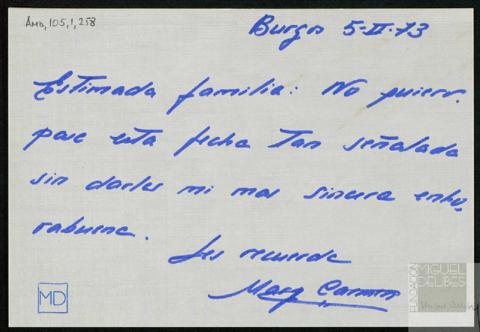 AMD,105,1,258
Burgos 5-II-73
Estimada familia: No quiero.
pase esta fecha tan señalada
sin darles mi mas sincera enho-
rabuena.
Les recuerda
Mary Carmen
MD
FUNDACIÓN
MIGUEL
DELIBES